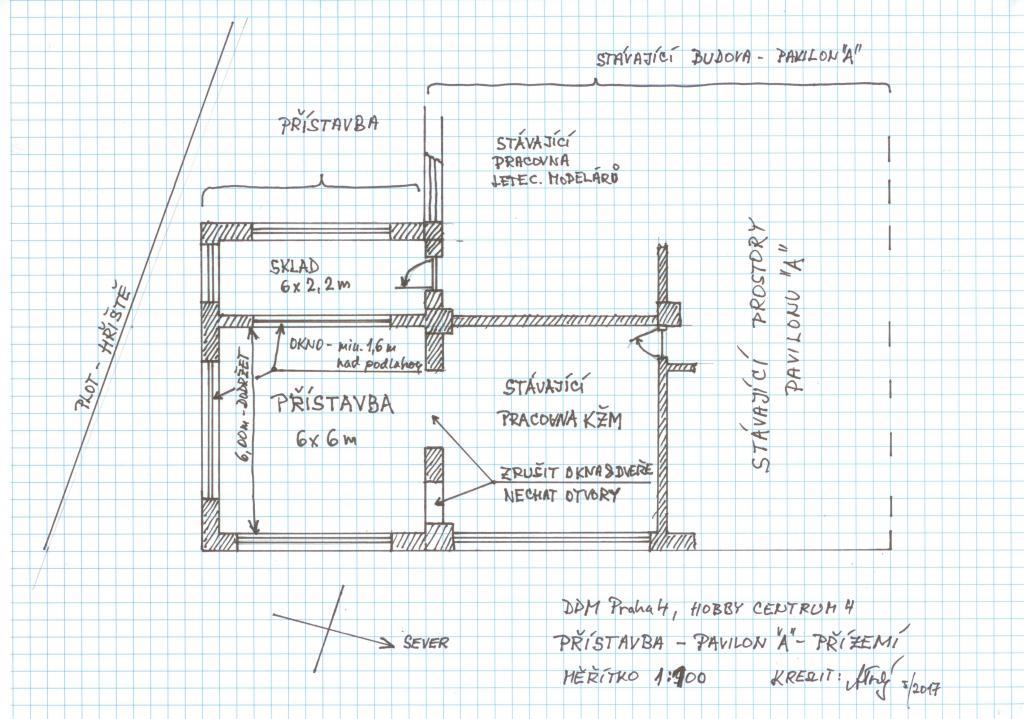 STÁVAJÍCÍ BUDOVA - PAVILON "A"
PŘÍSTAVBA
STÁVAJÍCÍ
PRACOVNA
LETEC. MODELÁRŮ
SKLAD
6 x 2,2 m
PLOT - HŘIŠTĚ
OKNO - min. 1,6 m
nad podlahou
6,00m - DODRŽET
PŘÍSTAVBA
6 x 6 m
STÁVAJÍCÍ
PRACOVNA KŽM
ZRUŠIT OKNA & DVEŘE
NECHAT OTVORY
STÁVAJÍCÍ PROSTORY
PAVILONU "A"
SEVER
DDM Praha 4, HOBBY CENTRUM 4
PŘÍSTAVBA - PAVILON "A" - PŘÍZEMÍ
MĚŘÍTKO 1:100
KRESLIL: 5/2017